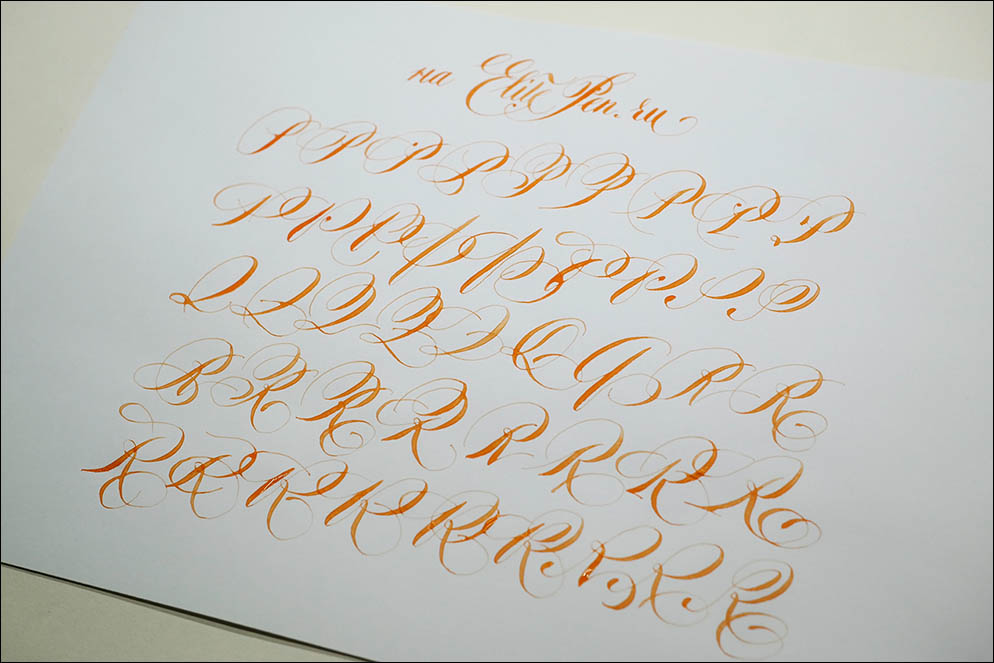 на ElitePen.ru
P P P P P P P P P
P P P P P P P P P
Q Q Q Q Q Q Q R R
R R R R R R R R
R R R R R R R R R